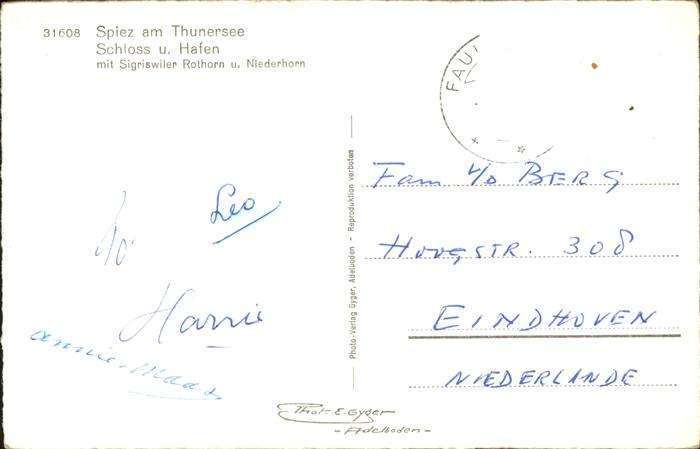 31608 Spiez am Thunersee
Schloss u. Hafen
mit Sigriswiler Rothorn u. Niederhorn
FAU
Fam v/d BERG
HOOGSTR. 308
EINDHOVEN
NIEDERLANDE
Leo
Jo
Harrie
annie-Maas
Photo-Verlag Gyger, Adelboden - Reproduktion verboten
Phot-E.Gyger
-Adelboden-